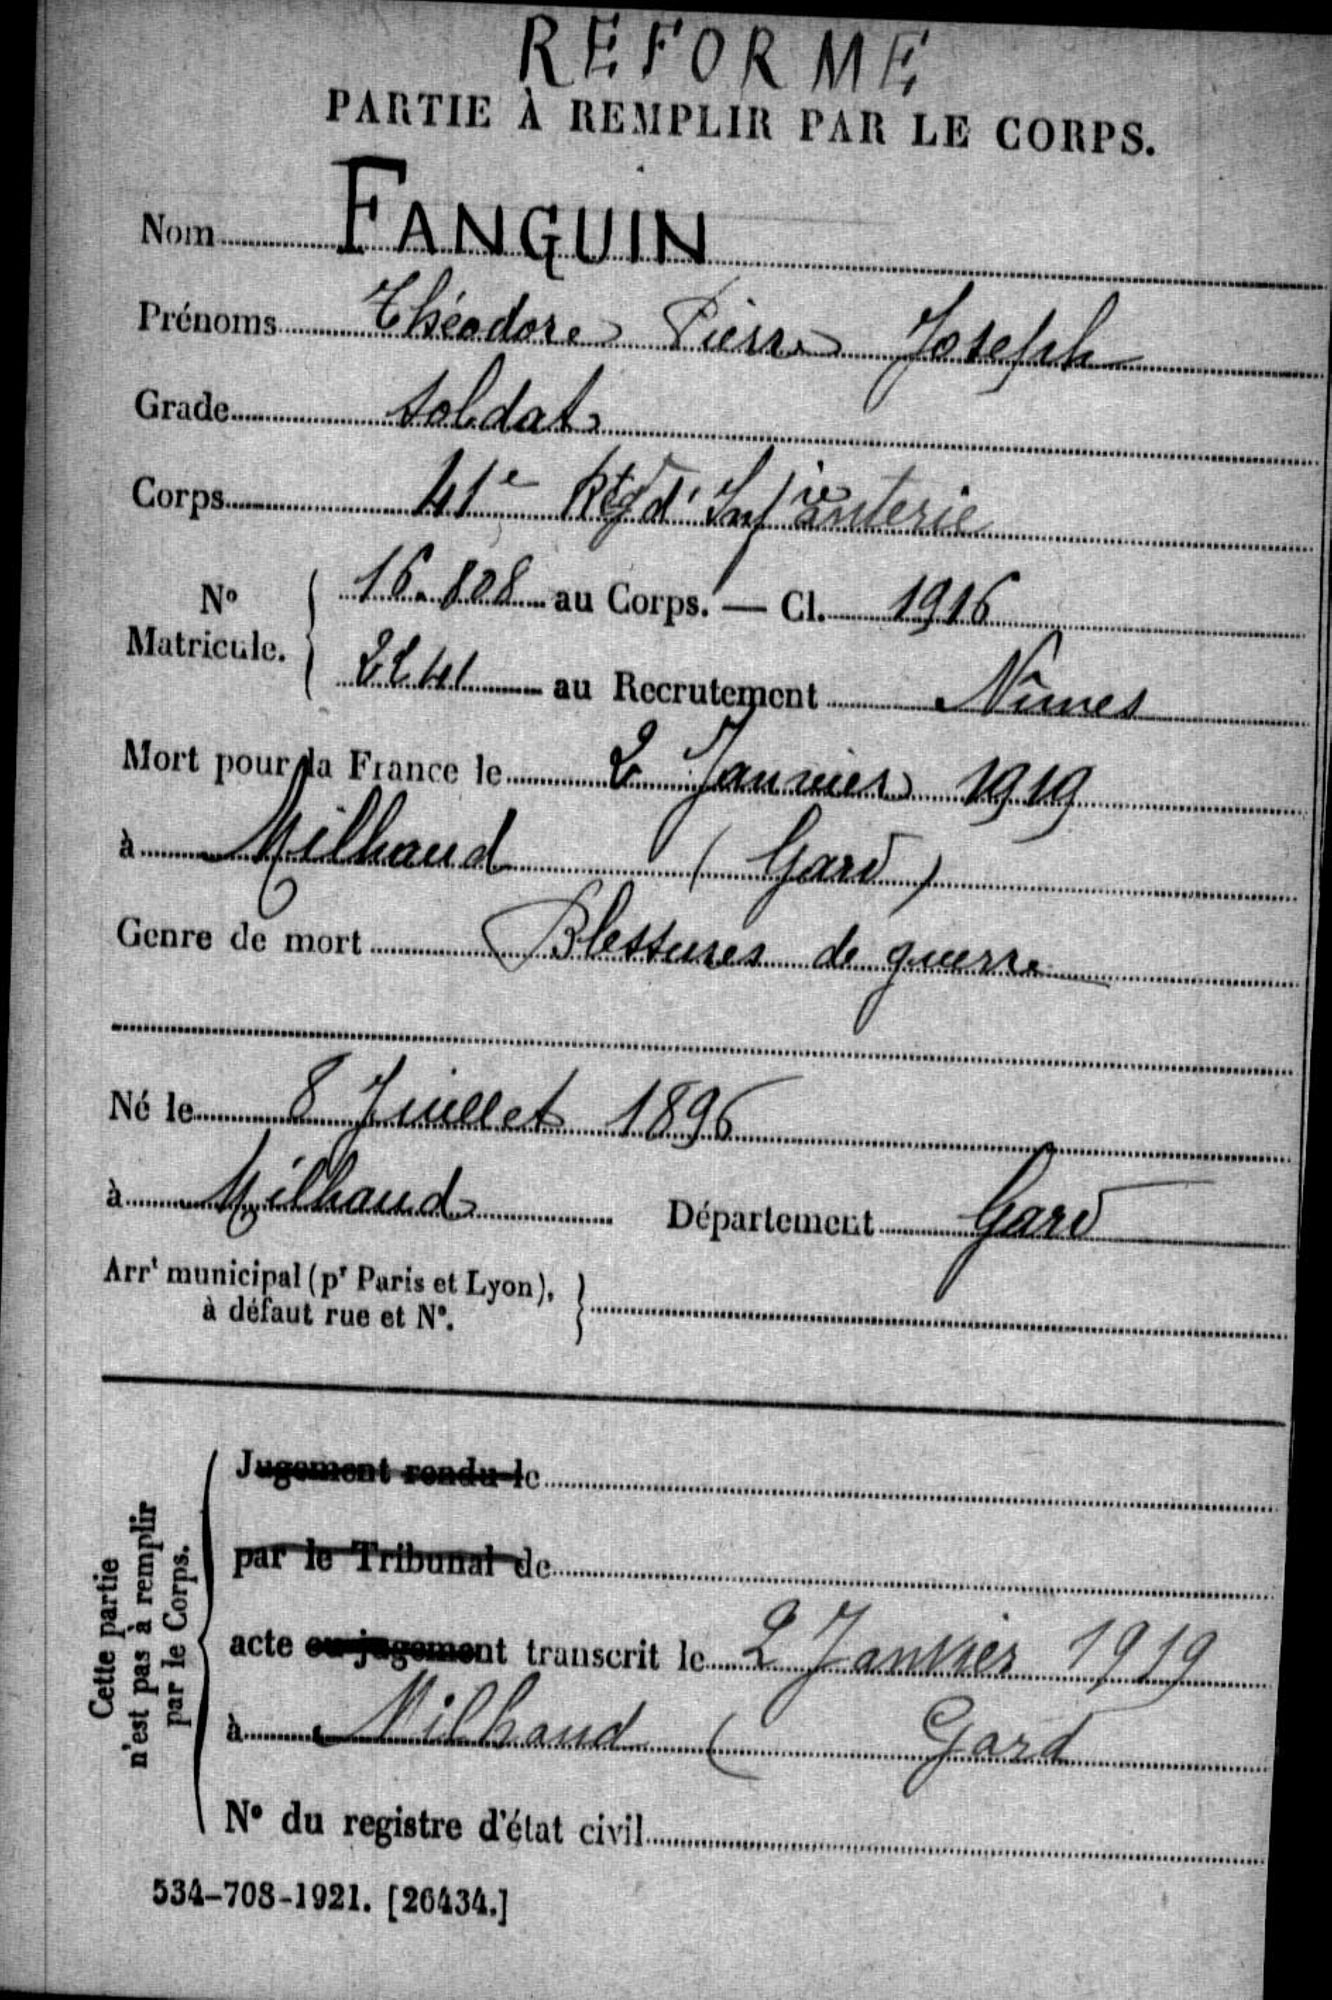 REFORME
PARTIE À REMPLIR PAR LE CORPS.
Nom FANGUIN
Prénoms Théodore Pierre Joseph
Grade soldat
Corps 41e Rgt d'Infanterie
No Matricule. { 16.808 au Corps. — Cl. 1916
2241 au Recrutement Nîmes
Mort pour la France le 2 Janvier 1919
à Milhaud (Gard)
Genre de mort Blessures de guerre
Né le 8 Juillet 1896
à Milhaud Département Gard
Arrt municipal (pr Paris et Lyon),
à défaut rue et No. }
Cette partie
n'est pas à remplir
par le Corps.
Jugement rendu le
par le Tribunal de
acte ou jugement transcrit le 2 Janvier 1919
à Milhaud ( Gard
No du registre d'état civil
534-708-1921. [26434.]